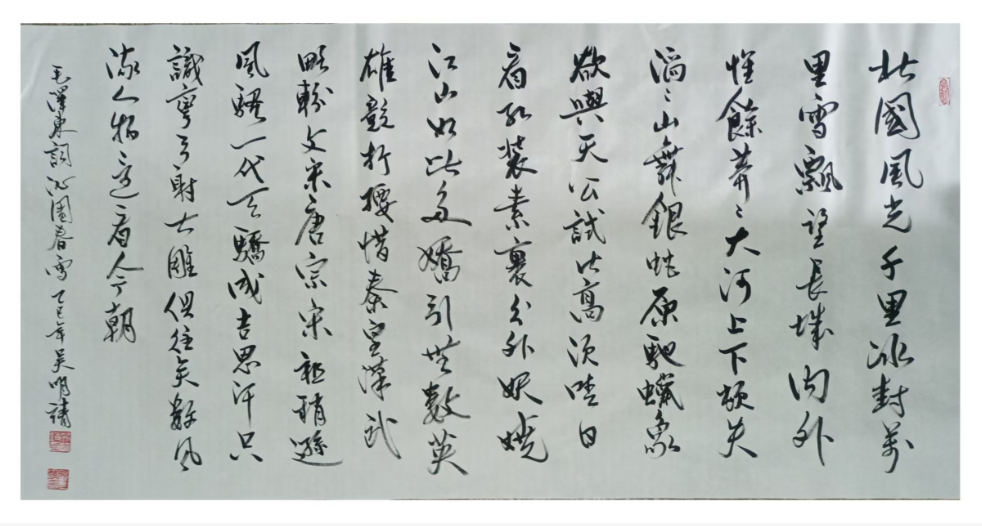 北國風光千里冰封萬
里雪飄望長城内外
惟餘莽〻大河上下頓失
滔〻山舞銀蛇原馳蠟象
欲與天公試比高須晴日
看紅装素裹分外妖嬈
江山如此多嬌引無數英
雄競折腰惜秦皇漢武
略輸文采唐宗宋祖稍遜
風騷一代天驕成吉思汗只
識彎弓射大雕俱往矣數風
流人物還看今朝
毛澤東詞沁園春雪 乙巳年吴明